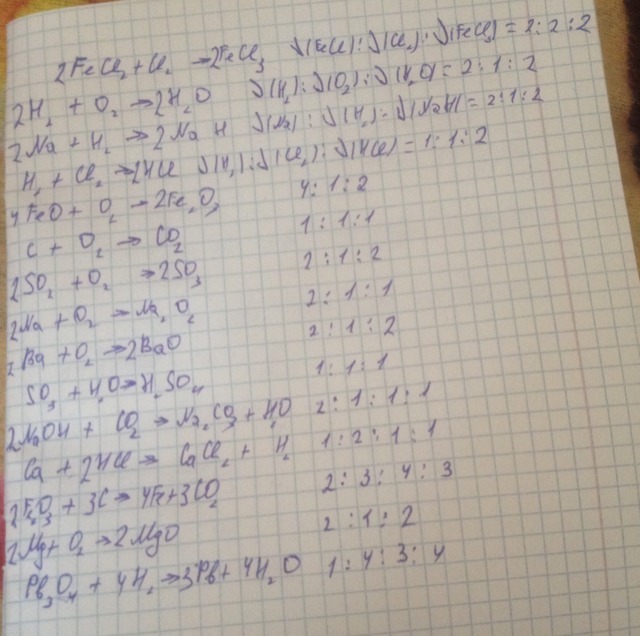 2FeCl₂ + Cl₂ → 2FeCl₃ ν(FeCl) : ν(Cl₂) : ν(FeCl₃) = 2 : 2 : 2
2H₂ + O₂ → 2H₂O ν(H₂) : ν(O₂) : ν(H₂O) = 2 : 1 : 2
2Na + H₂ → 2NaH ν(Na) : ν(H₂) : ν(NaH) = 2 : 1 : 2
H₂ + Cl₂ → 2HCl ν(H₂) : ν(Cl₂) : ν(HCl) = 1 : 1 : 2
4FeO + O₂ → 2Fe₂O₃ 4 : 1 : 2
C + O₂ → CO₂ 1 : 1 : 1
2SO₂ + O₂ → 2SO₃ 2 : 1 : 2
2Na + O₂ → Na₂O₂ 2 : 1 : 1
2Ba + O₂ → 2BaO 2 : 1 : 2
SO₃ + H₂O → H₂SO₄ 1 : 1 : 1
2NaOH + CO₂ → Na₂CO₃ + H₂O 2 : 1 : 1 : 1
Ca + 2HCl → CaCl₂ + H₂ 1 : 2 : 1 : 1
2Fe₂O₃ + 3C → 4Fe + 3CO₂ 2 : 3 : 4 : 3
2Mg + O₂ → 2MgO 2 : 1 : 2
Pb₃O₄ + 4H₂ → 3Pb + 4H₂O 1 : 4 : 3 : 4